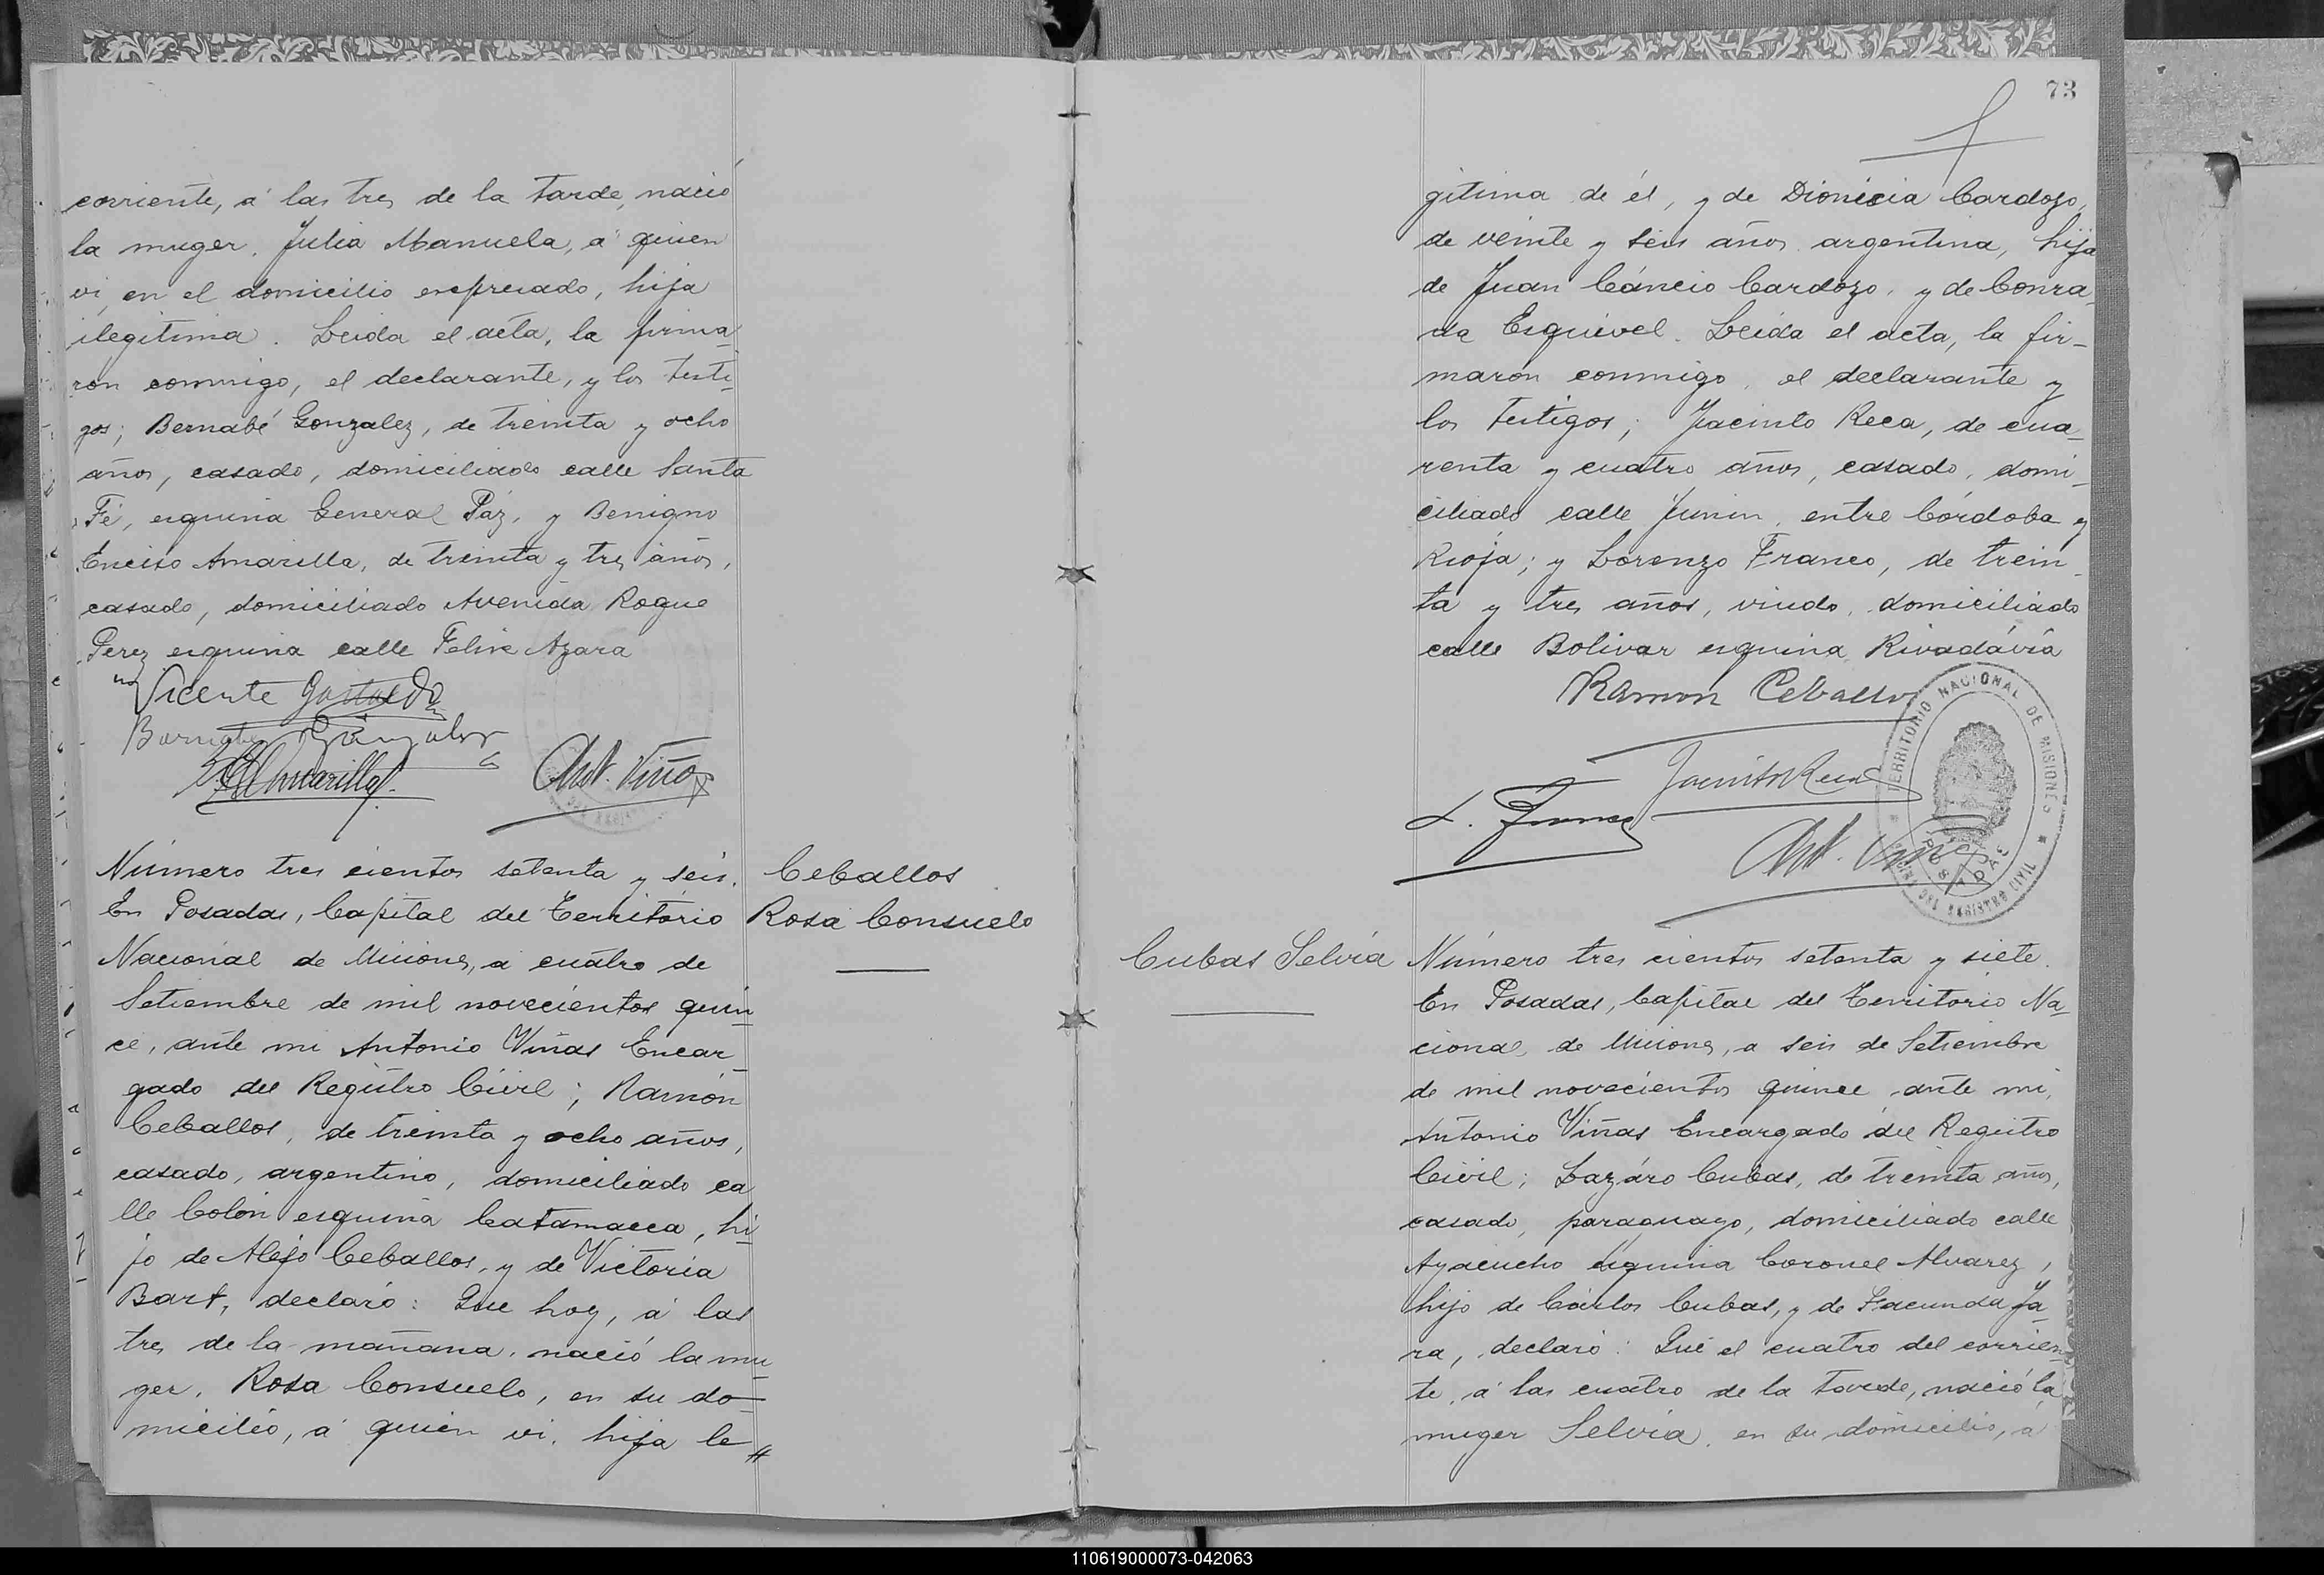 corriente, á las tres de la tarde, nació
la muger, Julia Manuela, á quien
vi, en el domicilio expresado, hija
ilegitima. Leida el acta, la firma-
ron conmigo, el declarante, y los testi-
gos; Bernabé Gonzalez, de treinta y ocho
años, casado, domiciliado calle Santa
Fé, esquina General Páz, y Benigno
Enciso Amarilla, de treinta y tres años,
casado, domiciliado Avenida Roque
Perez esquina calle Felix Azara
Vicente
Bernabe Gonzalez
Amarilla
Ant. Viñas
Número tres cientos setenta y seis.
En Posadas, Capital del Territorio
Nacional de Misiones, á cuatro de
Setiembre de mil novecientos quin-
ce, ante mi Antonio Viñas Encar-
gado del Registro Civil; Ramón
Ceballos, de treinta y ocho años,
casado, argentino, domiciliado ca
lle Colón esquina Catamarca, hi-
jo de Alejo Ceballos, y de Victoria
Bart, declaró: Que hoy, á las
tres de la mañana, nació la mu-
ger, Rosa Consuelo, en su do-
micilio, á quien vi, hija le
Ceballos
Rosa Consuelo
73
gitima de él, y de Dionicia Cardozo,
de veinte y seis años argentina, hija
de Juan Cáncio Cardozo, y de Conra-
da Esquivel. Leida el acta, la fir-
marón conmigo, el declarante y
los testigos; Jacinto Reca, de cua-
renta y cuatro años, casado, domi-
ciliado calle Junin, entre Córdoba y
Rioja; y Lorenzo Franco, de trein-
ta y tres años, viudo, domiciliado
calle Bolivar esquina Rivadávia
Ramon Ceballos
Jacinto Reca
L. Franco
Ant. Viñas
TERRITORIO NACIONAL DE MISIONES
POSADAS
OFICINA DEL REGISTRO CIVIL
Cubas Selvia
Número tres cientos setenta y siete.
En Posadas, Capital del Territorio Na-
cional, de Misiones, a seis de Setiembre
de mil novecientos quince ante mi,
Antonio Viñas Encargado del Registro
Civil; Lazáro Cubas, de treinta años,
casado, paraguayo, domiciliado calle
Ayacucho esquina Coronel Alvarez,
hijo de Cárlos Cubas, y de Facunda Ja-
ra, declaró: Que el cuatro del corrien-
te, á las cuatro de la tarde, nació la
muger Selvia, en su domicilio, á
110619000073-042063